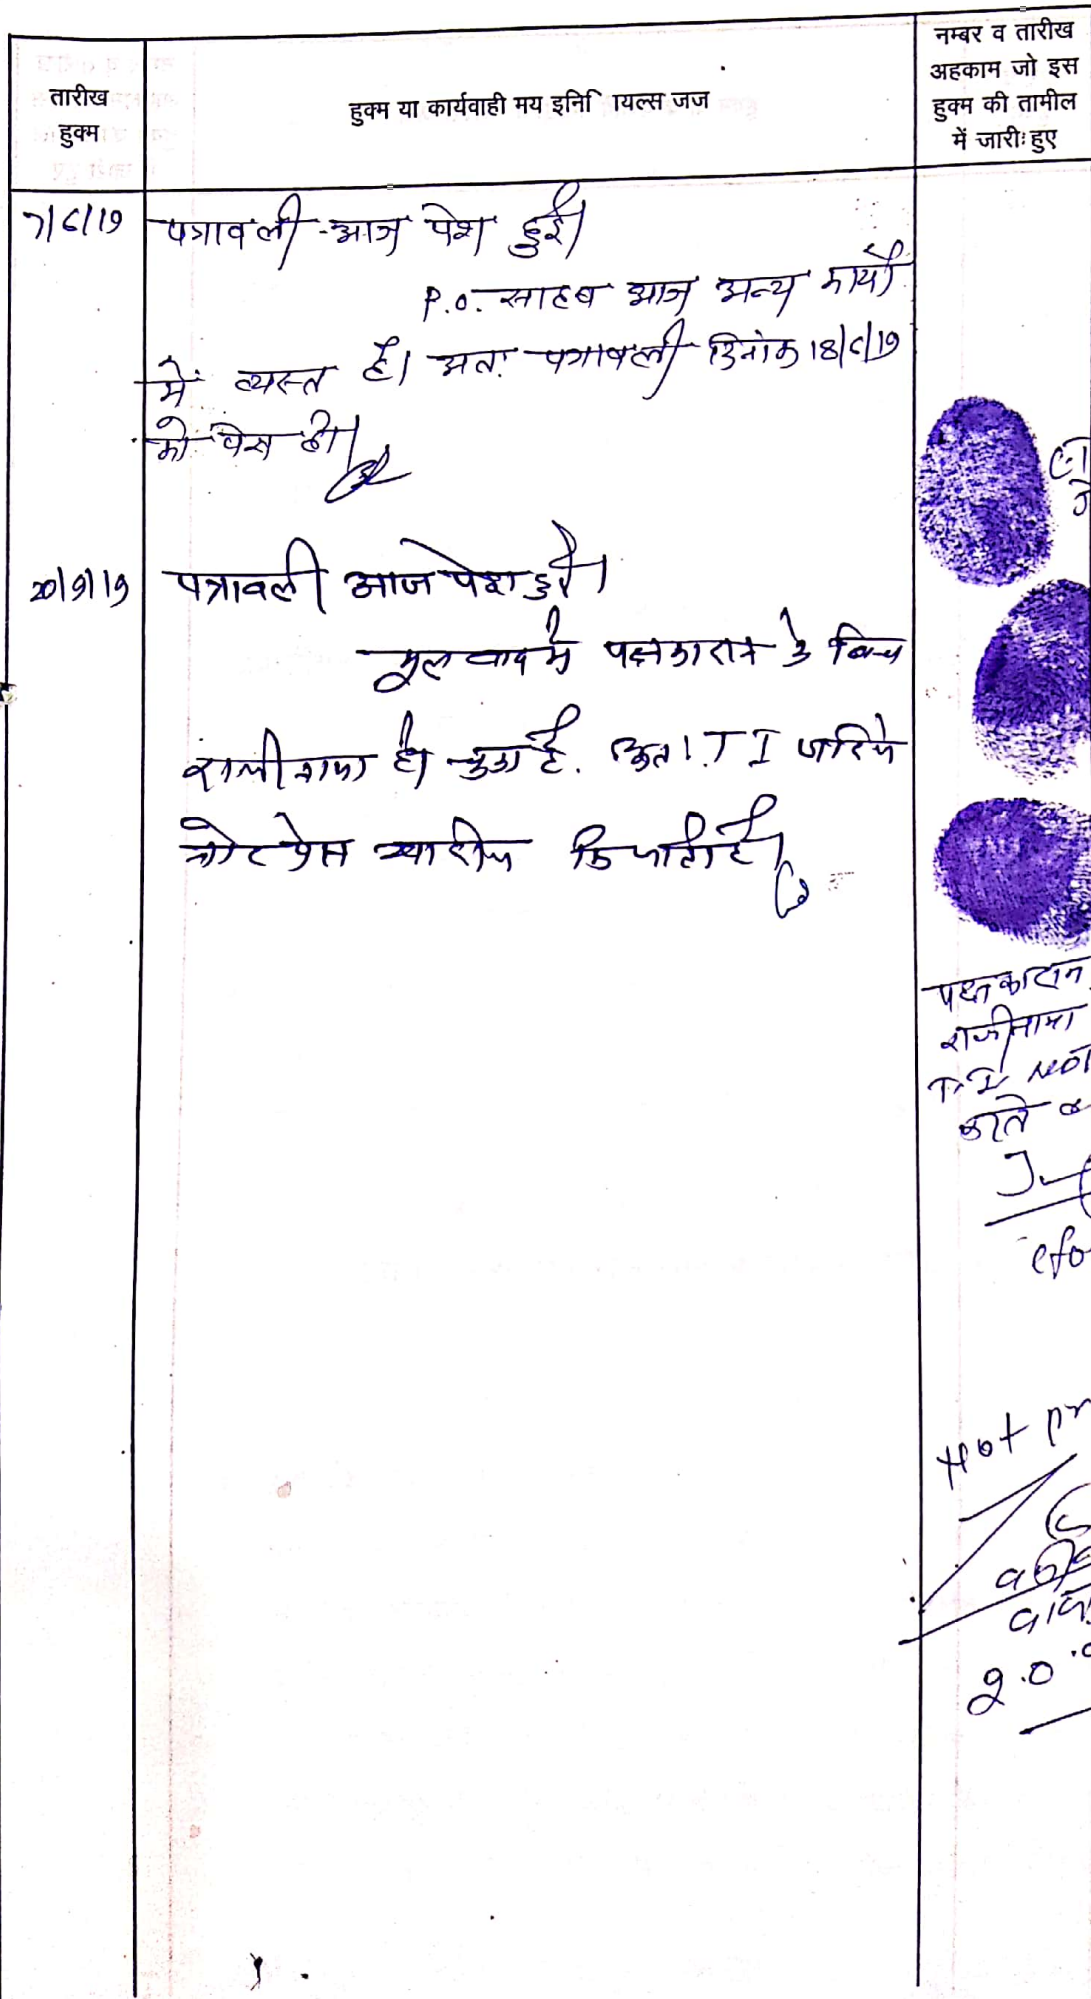 तारीख
हुक्म
हुक्म या कार्यवाही मय इनि ायल्स जज
नम्बर व तारीख
अहकाम जो इस
हुक्म की तामील
में जारीः हुए
7/6/19 पत्रावली आज पेश हुई।
P.O. साहब आज अन्य कार्यो
में व्यस्त है। अतः पत्रावली दिनांक 18/6/19
को पेस हो।
20/9/19 पत्रावली आज पेश हुई।
मूल वाद में पक्षकारान के बिच
राजीनामा हो चुका है. अतः T I जरिये
नोट प्रेस खारीज कि जाती है।
पक्षकारान
राजीनामा
T.I. NOT
करते
Not pr